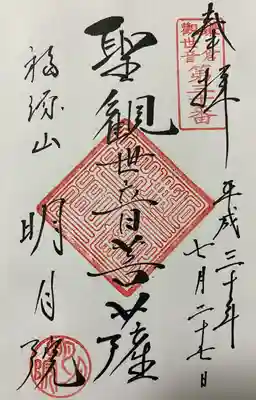 奉拝
鎌倉
観世音第三十番
平成三十年
七月二十七日
聖観世音菩薩
福源山
明月院